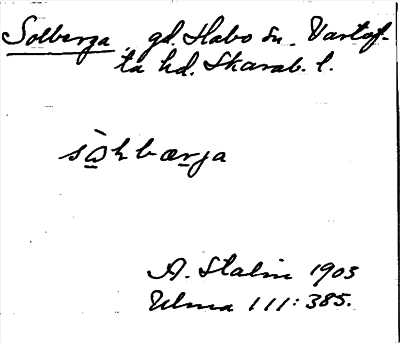 Solberga, gd. Habo sn. Vartof-
ta hd. Skarab. l.
sàhbærja
A. Stalin 1903
Ulma 111:385.